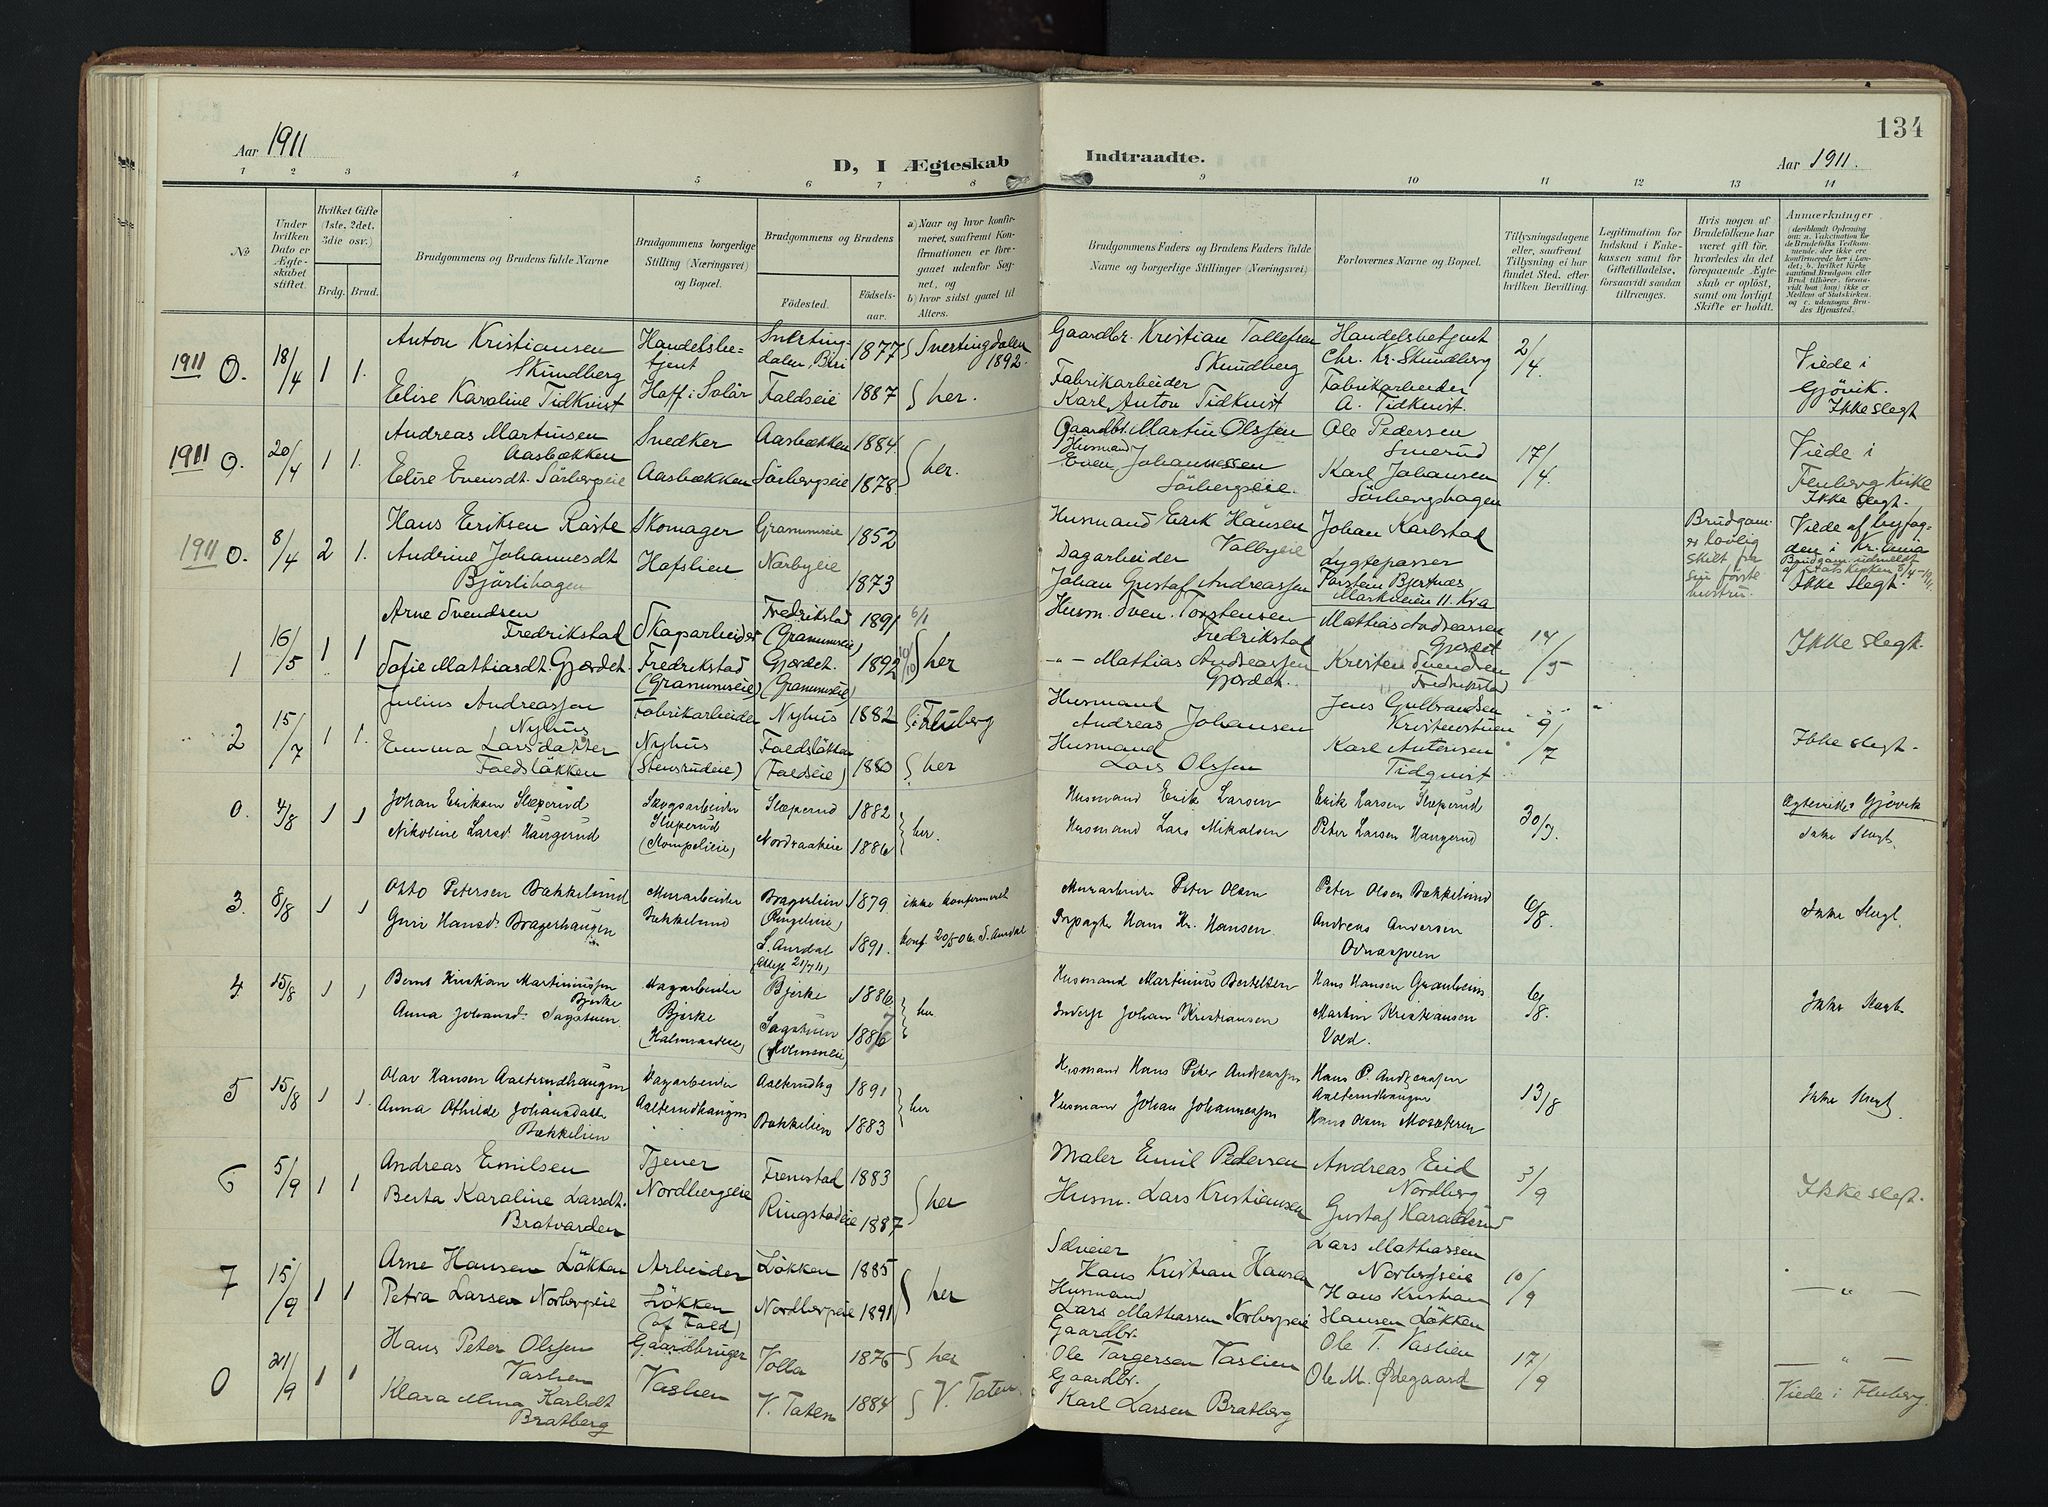 134
Aar 1911
D, I Ægteskab
Indtraadte.
Aar 1911.
1 2 3 4 5 6 7 8 9 10 11 12 13 14
No
Under hvilken Dato er Ægteskabet stiftet.
Hvilket Gifte (1ste, 2det, 3die osv.)
Brdg. Brud.
Brudgommens og Brudens fulde Navne
Brudgommens borgerlige Stilling (Næringsvei) og Bopæl.
Brudgommens og Brudens
Födested.
Födsels-aar.
a) Naar og hvor konfirmeret, saafremt Konfirmationen er foregaaet udenfor Sognet, og
b) hvor sidst gaaet til Alters.
Brudgommens Faders og Brudens Faders fulde Navne og borgerlige Stillinger (Næringsvei)
Forlovernes Navne og Bopæl.
Tillysningsdagene eller, saafremt Tillysning ei har fundet Sted, efter hvilken Bevilling.
Legitimation for Indskud i Enkekassen samt for Giftetilladelse, forsaavidt saadan tiltrænges.
Hvis nogen af Brudefolkene har været gift för, hvorledes da det foregaaende Ægteskab er oplöst, samt om lovligt Skifte er holdt.
Anmærkninger
1911 0. 18/4 1 1.
Anton Kristiansen Skundberg
Handelsbetjent
Snertingdalen, Biri 1877
Snertingdalen 1892.
Gaardbr. Kristian Tollefsen Skundberg
Handelsbetjent Chr. Kr. Skundberg
2/4.
Viede i Gjövik. Ikke slegt
Elise Karoline Tidkvist
Hoff i Solör
Faldseie 1887
her.
Fabrikarbeider Karl Anton Tidkvist
Fabrikarbeider A. Tidkvist.
1911 0. 20/4 1 1.
Andreas Martinsen Aasbækken
Snedker
Aasbækken 1884.
her.
Gaardbr. Martin Olssen
Ole Pedersen Smerud
17/4.
Viede i Fluberg Kirke Ikke slegt.
Elise Evensdt. Sörbergseie
Aasbækken
Sörbergseie 1878.
Husmand Even Johannessen Sörbergseie.
Karl Johansen Sörbergshagen
1911 0. 8/4 2 1.
Hans Eriksen Röste
Skomager
Granumseie 1852
Husmand Erik Hansen Valbyeie
Johan Karlstad
Brudgom. er lovlig skilt fra sin förste hustru.
Viede af byfogden i Kr.ania
Brudgom. udmeldt af statskirken
Ikke slegt.
Andrine Johannesdt Björlihagen
Hofslien
Narbyeie 1873
Dagarbeider Johan Gustaf Andreassen
Lygtepasser Torstein Bjertnæs Markveien 11. Kra
1 16/5 1 1
Arne Svendsen Fredrikstad
Skaparbeider
Fredrikstad (Granumseie) 1891
her
Husm. Sven Torstensen Fredrikstad
Mathias Andreassen Gjerdet
14/5
Ikke slegt.
Sofie Mathiasdt. Gjærdet
Fredrikstad (Granumseie)
Gjærdet. (Granumseie) 1892
-"- Mathias Andreassen Gjærdet.
Kristen Svendsen Fredrikstad
2 15/7 1 1.
Julius Andreassen Nyhus
Fabrikarbeider
Nyhus 1882
i Fluberg
Husmand Andreas Johansen
Jens Gulbrandsen Kristenstuen
9/7
Ikke slegt.
Emma Larsdatter Faldslökken
Nyhus (Stensrudeie)
Faldslökken (Faldseie) 1880
her
Husmand Lars Olssen
Karl Antonsen Tidquist
0. 4/8 1 1
Johan Eriksen Slæperud
Slæperud 1882
her.
Husmand Erik Larsen
Erik Larsen Slæperud
30/7.
Ægteviedes Gjövik
Ikke slegt.
Nikoline Larsd. Haugerud
Slæperud
Nordraakeie 1886
Husmand Lars Mikalsen
Peter Larsen Haugerud
3. 8/8 1 1
Otto Petersen Bækkelund
Murarbeider
Bragerlien 1879
ikke konfirmeret
Murarbeider Peter Olsen
Peter Olsen Bækkelund
6/8.
Ikke slegt.
Guri Hansd. Bragerhaugen
Bækkelund
S. Aurdal 1891.
konf. S. Aurdal
Hans Kr. Hansen.
Andreas Andersen
4 15/8 1 1
Bernt Kristian Martiniussen Bjerke
Dagarbeider
Bjerke 1886
her
Husmand Martinius Bertelsen
Hans Hansen
6/8.
Ikke slegt
Anna Johansd. Sagstuen
Bjerke
Sagstuen 1886
Inderst Johan Kristiansen
Martin Kristiansen Vold.
5 15/8 1 1.
Olav Hansen Aalterudhaugen
Dagarbeider
1891
her
Husmand Hans Peter Andreassen
Hans P. Andreassen Aalterudhaugen
13/8
Ikke slegt
Anna Othilde Johansdatter Bækkelien
Aalterudhaugen
Bækkelien 1883
Husmand Johan Johannessen
Hans Olsen
6 5/9 1 1
Andreas Emilsen
Tjener
Fremstad 1883
her
Maler Emil Pedersen
Andreas Nordberg
3/9
Ikke slegt.
Berta Karoline Larsdt. Bratvarden
Nordbergseie
Ringstadeie 1887
Husm. Lars Kristiansen
Gustaf
7 15/9 1 1
Arne Hansen Lökken
Arbeider
Lökken 1885
her
Selveier Hans Kristian Hansen
Lars Mathiassen Norbergseie
10/9
— " —
Petra Larsen Norbergseie
Lökken (af Fald)
Nordbergseie 1891
Husmand Lars Mathiassen Norbergseie
Hans Kristian Hansen Lökken
0 21/9 1 1
Hans Peter Olssen Vaslien
Gaardbruger
Volla 1875
her
Gaardbr. Ole Torgersen Vaslien
Ole T. Vaslien
17/9
— " —
Viede i Fluberg.
Klara Mina Karlsdt Bratberg
Vaslien
V. Toten 1884
V. Toten.
Gaardbr. Karl Larsen Bratberg
Ole M. Ødegaard